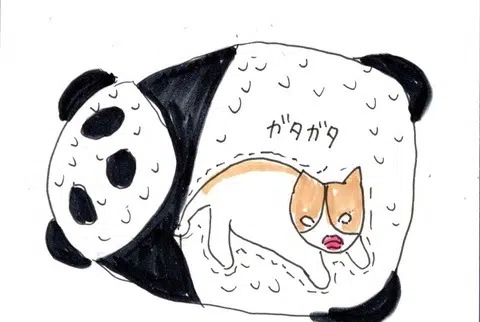 ガタガタ